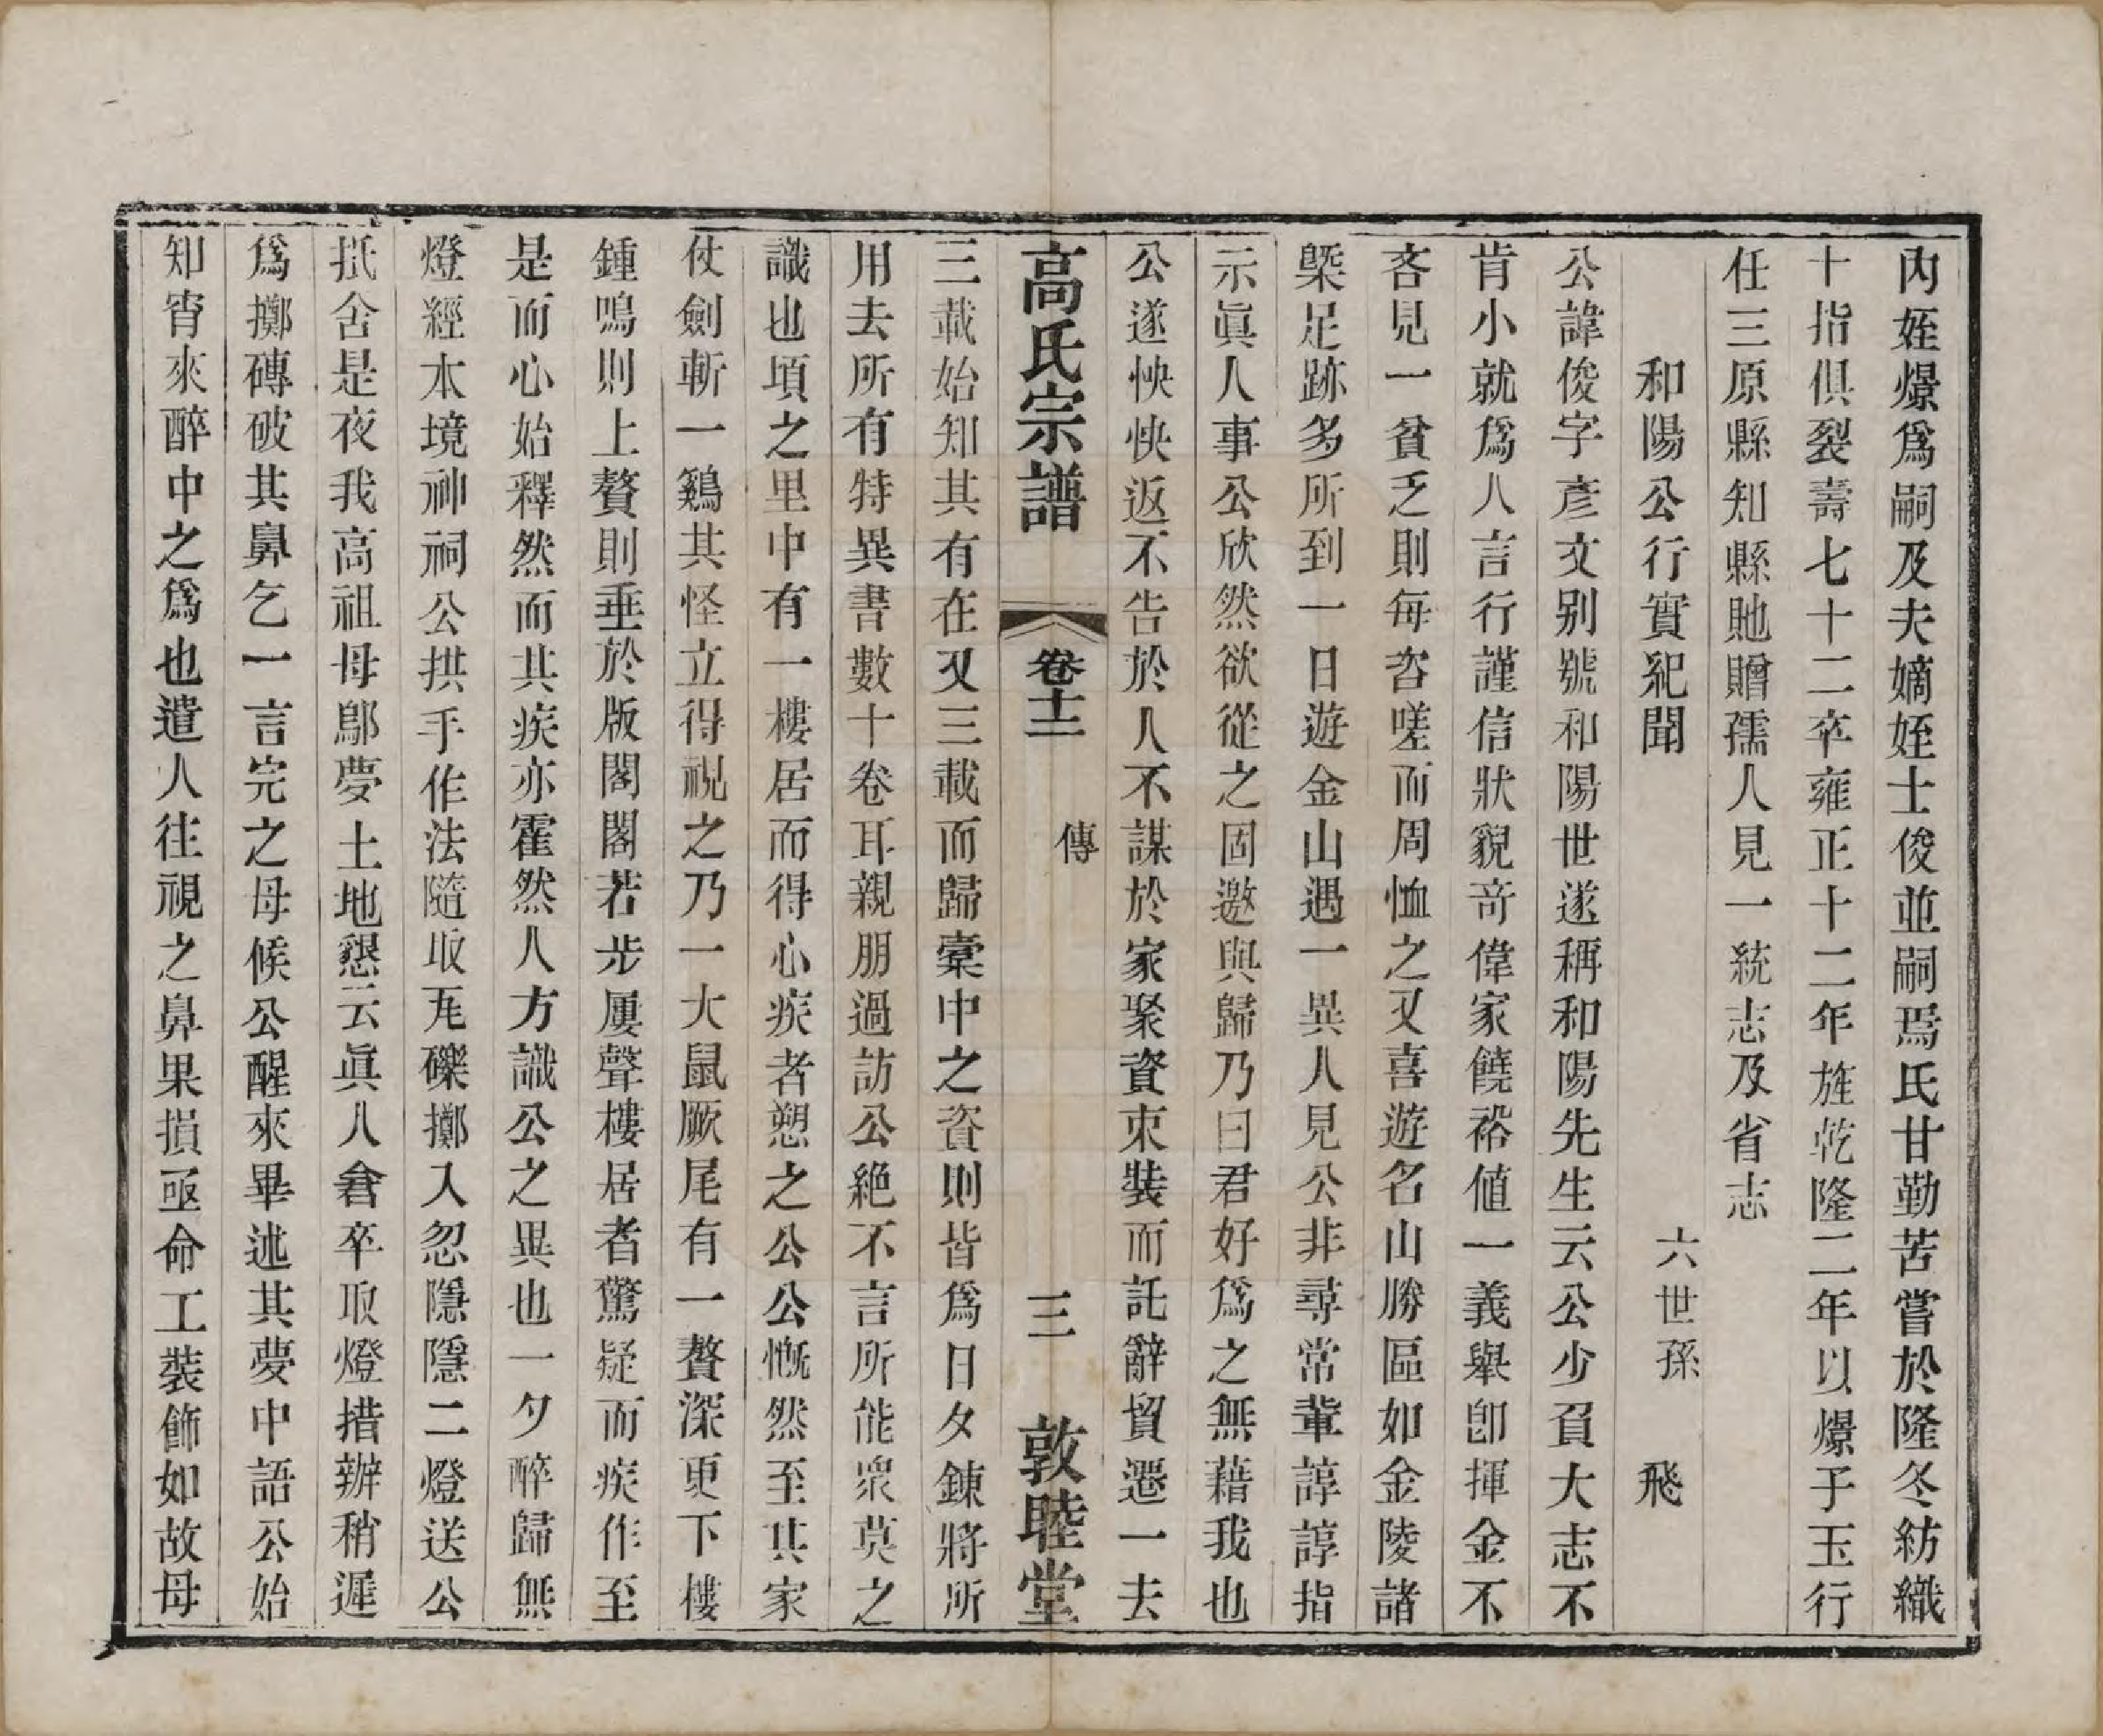 內姪爆爲嗣及夫嫡姪士俊並嗣焉氏甘勤苦嘗於隆冬紡織
十指俱裂壽七十二卒雍正十二年旌乾隆二年以爆子玉行
任三原縣知縣貤贈孺人見一統志及省志
和陽公行實紀聞 六世孫 飛
公諱俊字彥文别號和陽世遂稱和陽先生云公少負大志不
肯小就爲人言行謹信狀貌奇偉家饒裕値一義舉卽揮金不
吝見一貧乏則每咨嗟而周恤之又喜遊名山勝區如金陵諸
槩足跡多所到一日遊金山遇一異人見公非尋常輩諄諄指
示眞人事公欣然欲從之固邀與歸乃曰君好爲之無藉我也
公遂怏怏返不吿於人不謀於家聚資束裝而託辭貿遷一去
高氏宗譜 卷十二 傳 三 敦睦堂
三載始知其有在又三載而歸橐中之資則皆爲日夕鍊將所
用去所有特異書數十卷耳親朋過訪公絶不言所能衆莫之
識也項之里中有一樓居而得心疾者愬之公公慨然至其家
仗劍斬一鷄其怪立得視之乃一大鼠厥尾有一贅深更下樓
鍾鳴則上贅則垂於版閣閣若步屨聲樓居者驚疑而疾作至
是而心始釋然而其疾亦霍然人方識公之異也一夕醉歸無
燈經本境神祠公拱手作法隨取瓦礫擲入忽隱隱二燈送公
抵舍是夜我高祖母鄔夢土地懇云眞人倉卒取燈措辦稍遲
爲擲磚破其鼻乞一言完之母候公醒來畢述其夢中語公始
知宵來醉中之爲也遣人往視之鼻果損亟命工裝飾如故母